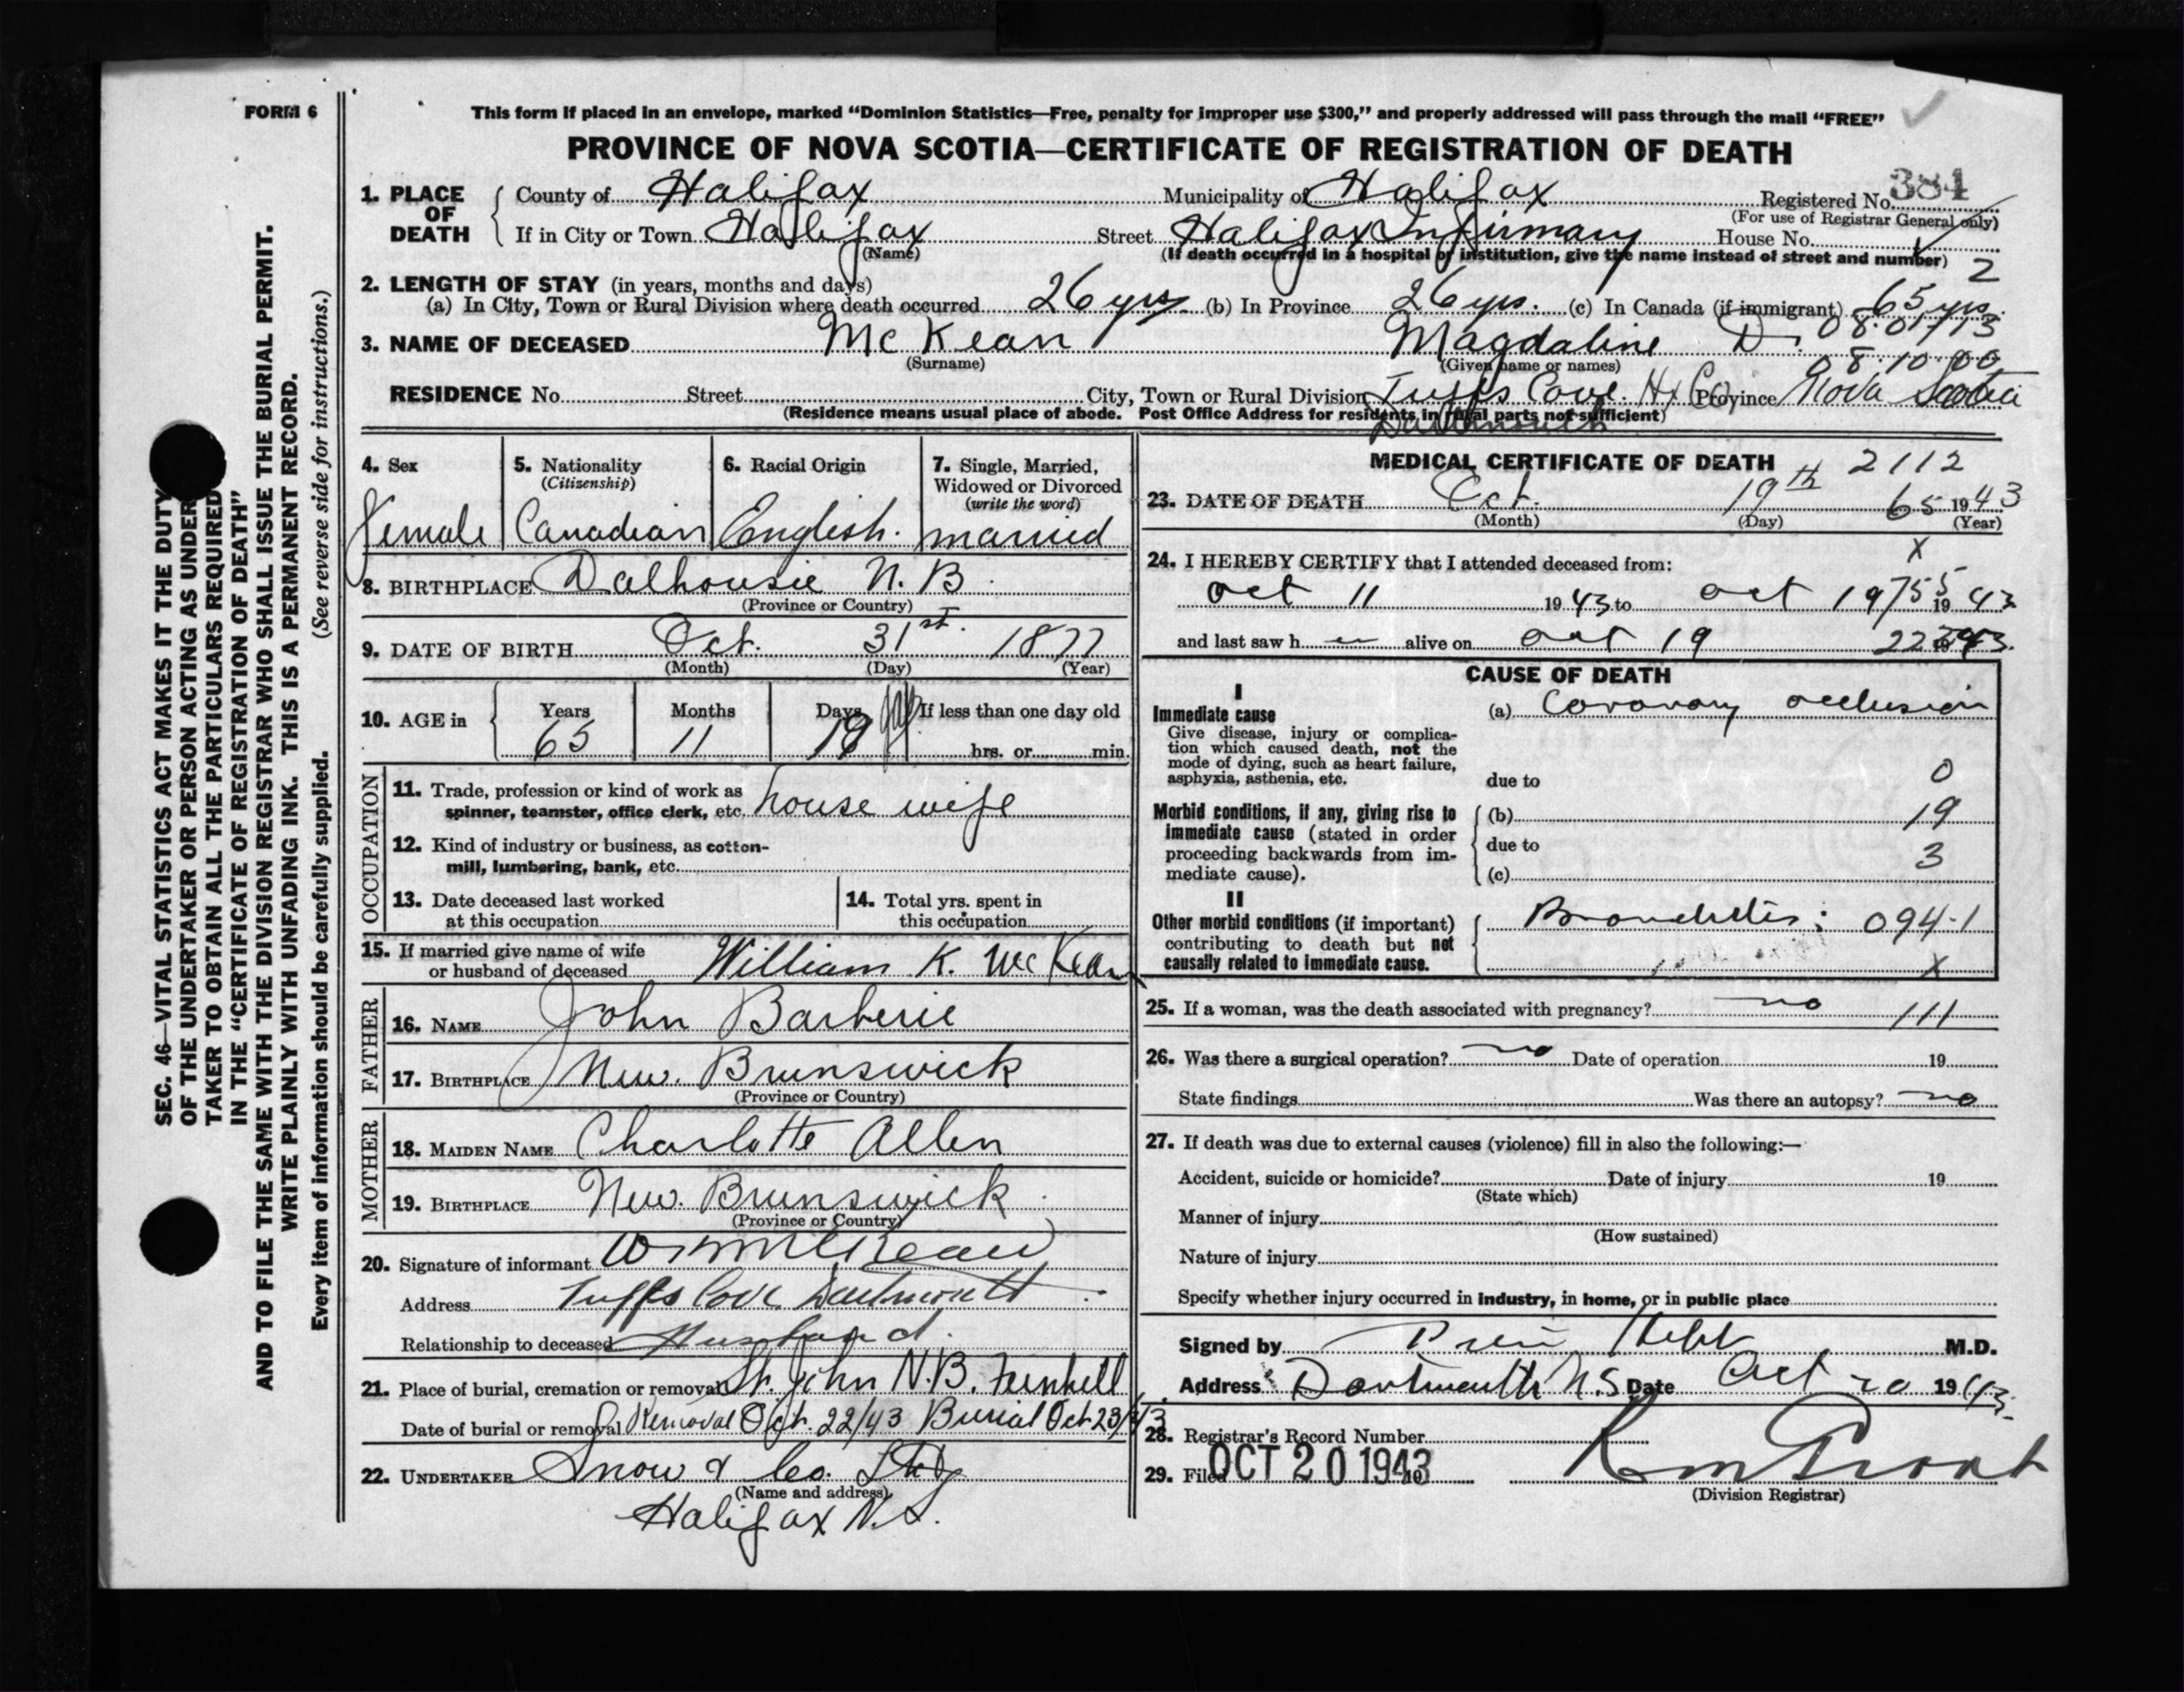 FORM 6
This form if placed in an envelope, marked “Dominion Statistics—Free, penalty for improper use $300,” and properly addressed will pass through the mail “FREE”
PROVINCE OF NOVA SCOTIA—CERTIFICATE OF REGISTRATION OF DEATH
1. PLACE OF DEATH
County of Halifax Municipality of Halifax Registered No. 384
(For use of Registrar General only)
If in City or Town Halifax Street Halifax Infirmary House No.
(Name) (If death occurred in a hospital or institution, give the name instead of street and number) 2
2. LENGTH OF STAY (in years, months and days)
(a) In City, Town or Rural Division where death occurred 26 yrs. (b) In Province 26 yrs. (c) In Canada (if immigrant) 65 yrs.
08.01713
3. NAME OF DECEASED McKean Magdaline D.
(Surname) (Given name or names) 08.10.00
RESIDENCE No. Street City, Town or Rural Division Tuffs Cove Hx Co. Province Nova Scotia
(Residence means usual place of abode. Post Office Address for residents in rural parts not sufficient)
Dartmouth
4. Sex
Female
5. Nationality
(Citizenship)
Canadian
6. Racial Origin
English.
7. Single, Married, Widowed or Divorced
(write the word)
married
8. BIRTHPLACE Dalhousie N.B.
(Province or Country)
9. DATE OF BIRTH Oct. 31st. 1877
(Month) (Day) (Year)
10. AGE in Years Months Days If less than one day old
65 11 19 hrs. or min.
OCCUPATION
11. Trade, profession or kind of work as
spinner, teamster, office clerk, etc. house wife
12. Kind of industry or business, as cotton-
mill, lumbering, bank, etc.
13. Date deceased last worked
at this occupation
14. Total yrs. spent in
this occupation
15. If married give name of wife
or husband of deceased William K. McKean
FATHER
16. NAME John Barberie
17. BIRTHPLACE New. Brunswick
(Province or Country)
MOTHER
18. MAIDEN NAME Charlotte Allen
19. BIRTHPLACE New. Brunswick
(Province or Country)
20. Signature of informant McKean
Address Tuffs Cove Dartmouth
Relationship to deceased Husband.
21. Place of burial, cremation or removal St. John N.B. Fernhill
Date of burial or removal Removal Oct. 22/43 Burial Oct 23/43
22. UNDERTAKER Snow & Co. Ltd
(Name and address)
Halifax N.S.
MEDICAL CERTIFICATE OF DEATH 2112
23. DATE OF DEATH Oct. 19th 65 1943
(Month) (Day) (Year)
24. I HEREBY CERTIFY that I attended deceased from: X
Oct 11 1943 to Oct 19 755 1943
and last saw h er alive on Oct 19 1943.
CAUSE OF DEATH
I
Immediate cause
Give disease, injury or complica-
tion which caused death, not the
mode of dying, such as heart failure,
asphyxia, asthenia, etc.
(a) Coronary occlusion
due to 0
Morbid conditions, if any, giving rise to
immediate cause (stated in order
proceeding backwards from im-
mediate cause).
(b) 19
due to 3
(c)
II
Other morbid conditions (if important)
contributing to death but not
causally related to immediate cause.
Bronchitis; 094-1
X
25. If a woman, was the death associated with pregnancy? no 111
26. Was there a surgical operation? no Date of operation 19
State findings Was there an autopsy? no
27. If death was due to external causes (violence) fill in also the following:—
Accident, suicide or homicide? Date of injury 19
(State which)
Manner of injury
(How sustained)
Nature of injury
Specify whether injury occurred in industry, in home, or in public place
Signed by M.D.
Address Dartmouth N.S. Date Oct 20 1943.
28. Registrar's Record Number
29. Filed OCT 20 1943
(Division Registrar)
SEC. 46—VITAL STATISTICS ACT MAKES IT THE DUTY
OF THE UNDERTAKER OR PERSON ACTING AS UNDER
TAKER TO OBTAIN ALL THE PARTICULARS REQUIRED
IN THE “CERTIFICATE OF REGISTRATION OF DEATH”
AND TO FILE THE SAME WITH THE DIVISION REGISTRAR WHO SHALL ISSUE THE BURIAL PERMIT.
WRITE PLAINLY WITH UNFADING INK. THIS IS A PERMANENT RECORD.
Every item of information should be carefully supplied. (See reverse side for instructions.)